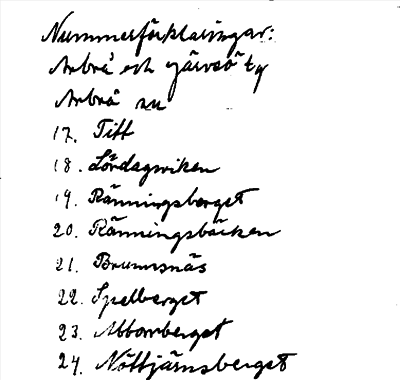 Nummerförklaringar:
Arbrå och Järvsö tg
Arbrå sn
17. Titt
18. Lördagsviken
19. Ränningsberget
20. Ränningsbäcken
21. Brunnsnäs
22. Spelberget
23. Abborrberget
24. Nöttjärnsberget